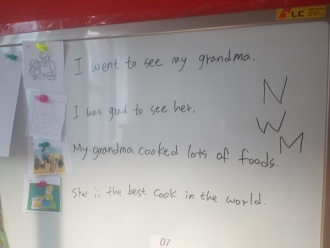 LC
I went to see my grandma.
I was grad to see her.
My grandma cooked lots of foods.
She is the best cook in the world.
N
W
M
07